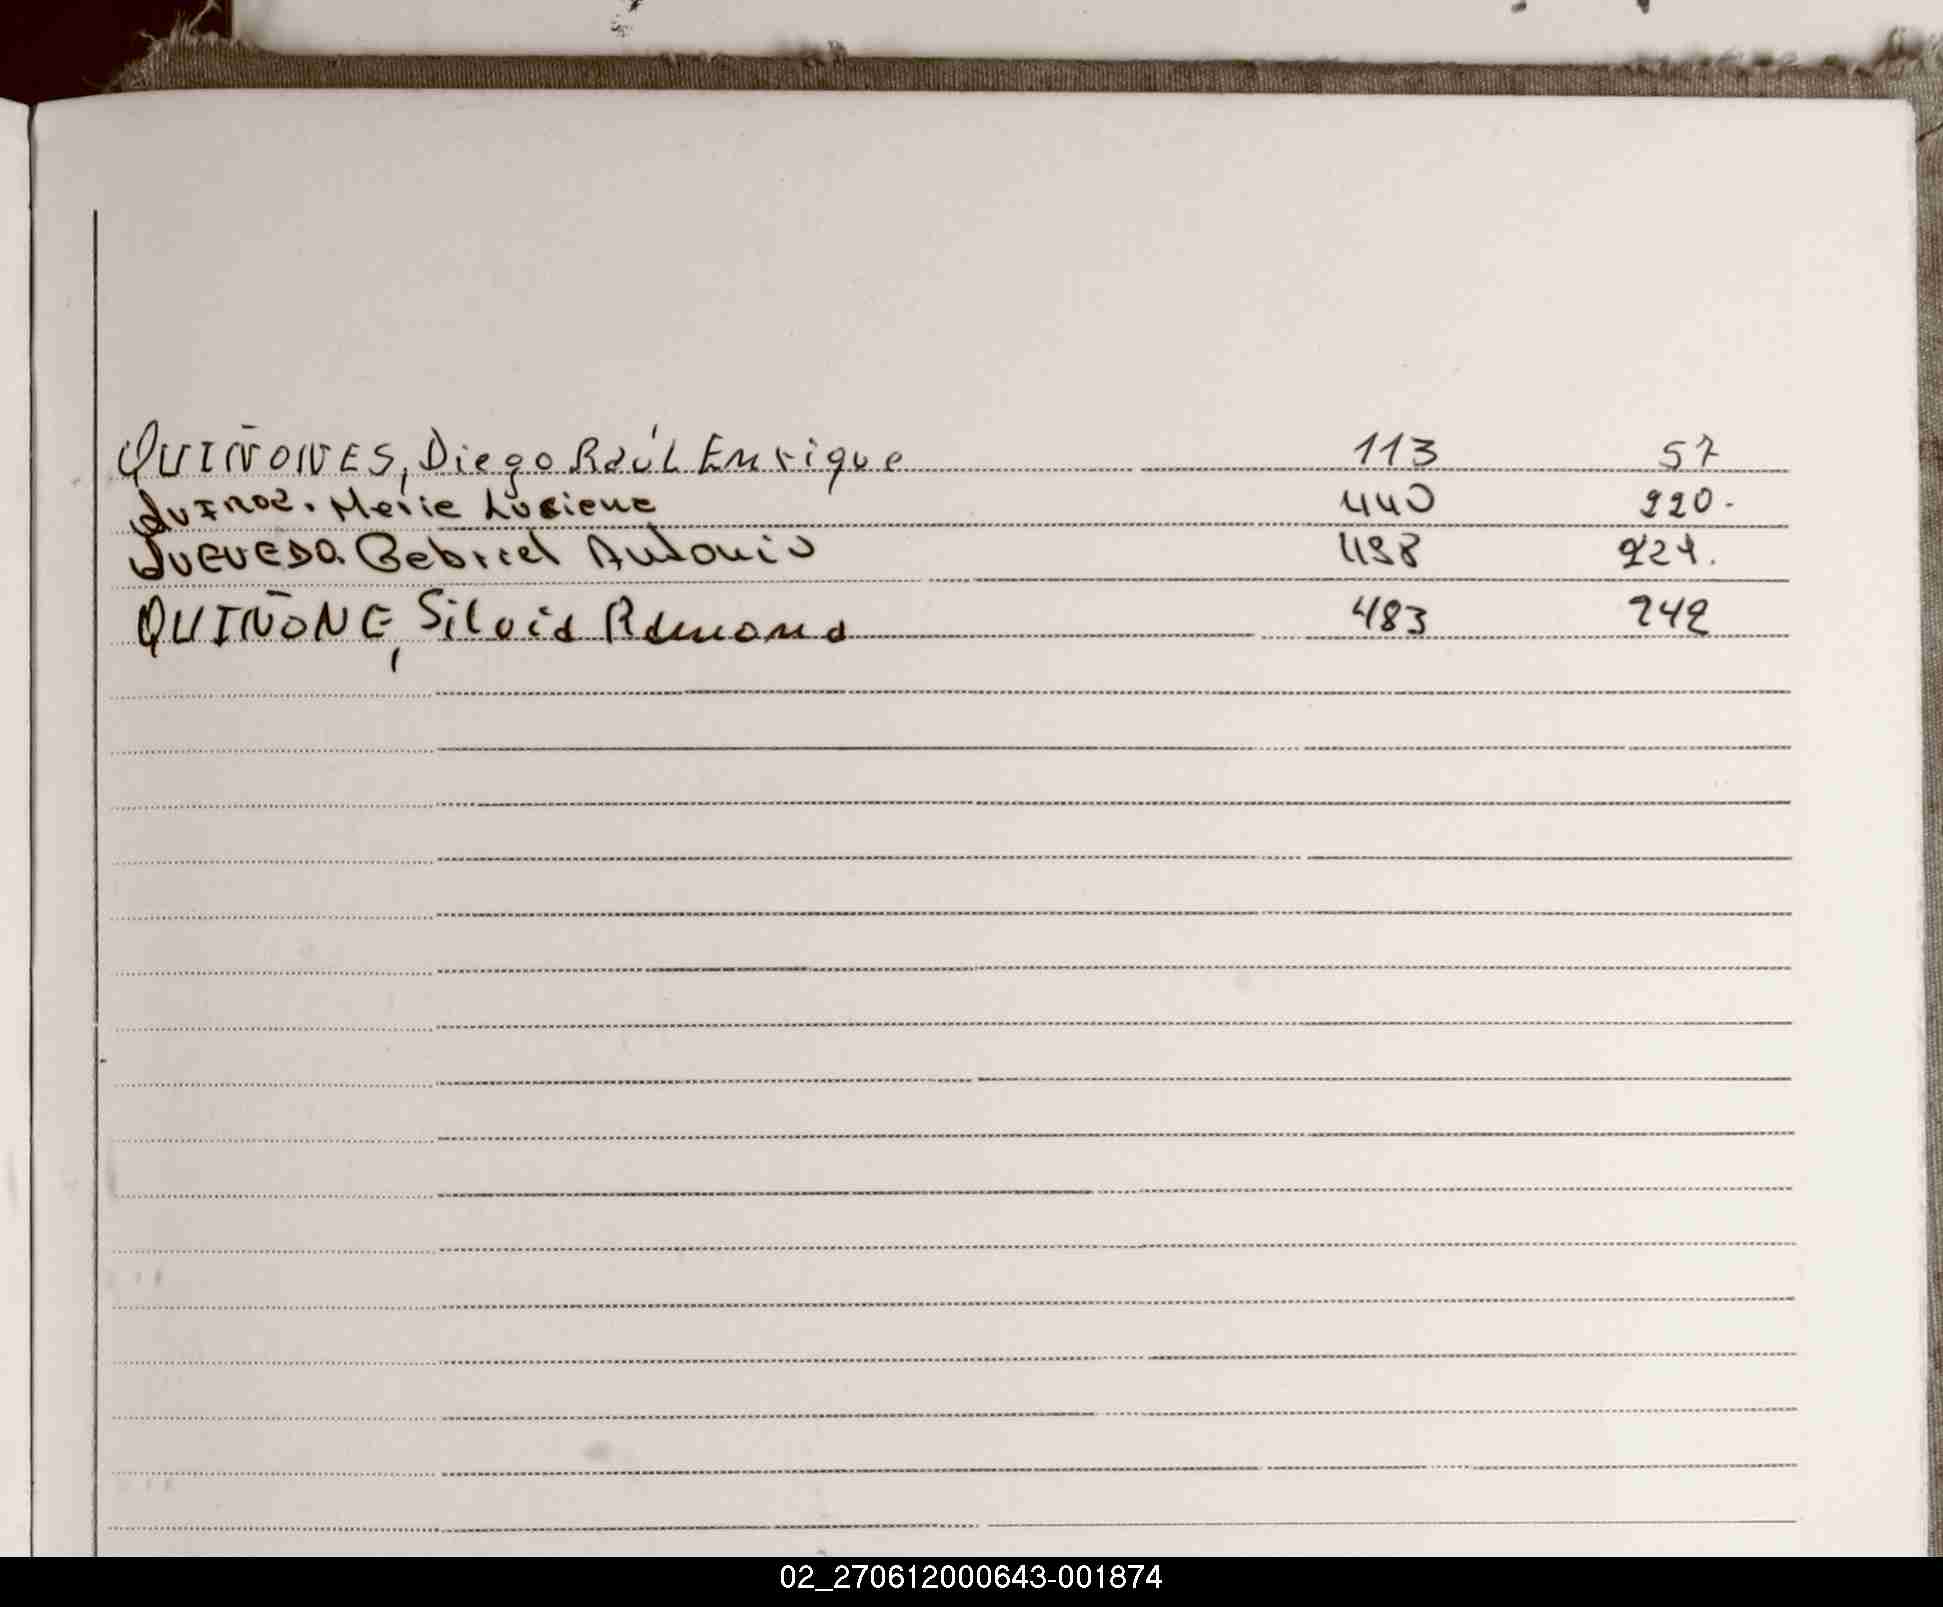 QUIÑONES, Diego Raúl Enrique 113 57
QUIROZ. Maria Luciana 440 220.
QUEVEDO. Gabriel Antonio 448 224.
QUIÑONE, Silvia Ramona 483 242
02_270612000643-001874